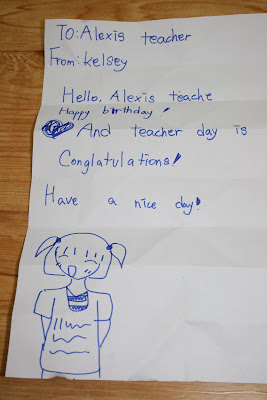 To: Alexis teacher
From: kelsey
Hello, Alexis teache
Happy birthday!
And teacher day is
Conglatulations!
Have a nice day!